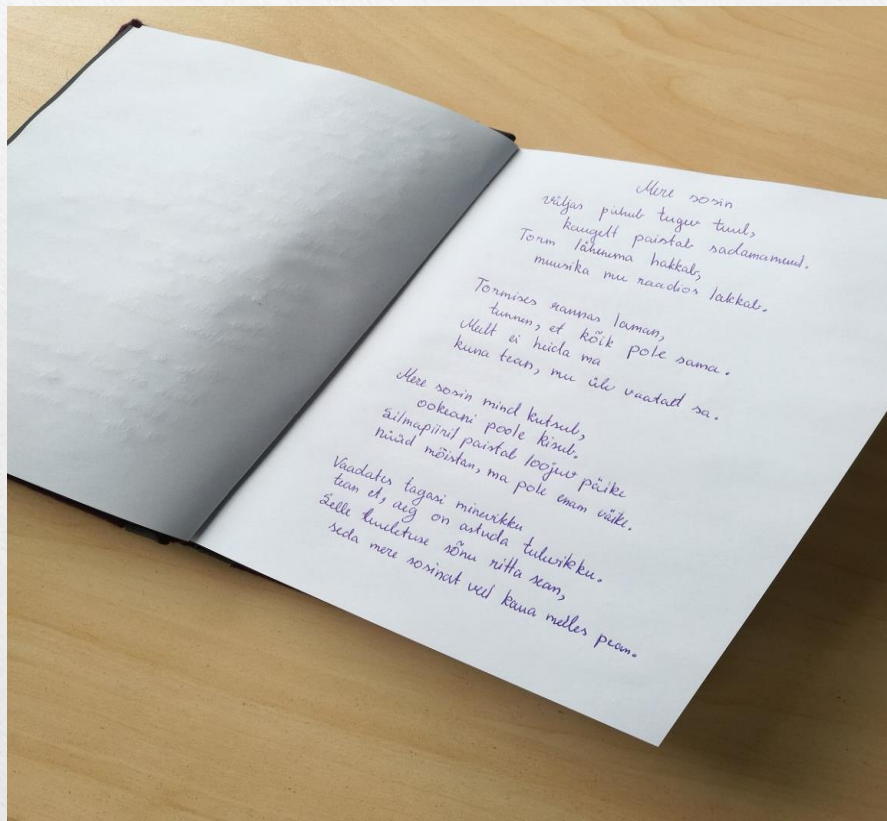 Mere sosin
väljas puhub tugev tuul,
kaugelt paistab sadamamuul.
Torm lähenema hakkab,
muusika mu raadios lakkab.
Tormises rannas laman,
tunnen, et kõik pole sama.
Meelt ei heida ma
kuna tean, mu üle vaatad sa.
Mere sosin mind kutsub,
ookeani poole kisub.
Silmapiiril paistab loojuv päike
nüüd mõistan, ma pole enam väike.
Vaadates tagasi minevikku
tean et, aeg on astuda tulevikku.
Selle luuletuse sõnu ritta sean,
seda mere sosinat veel kaua meeles pean.